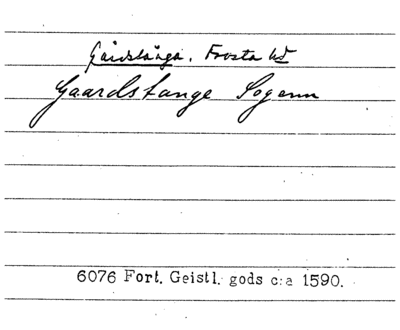 Gårdstånga. Frosta hd
Gaardstange Sogenn
6076 Fort. Geistl. gods c:a 1590.